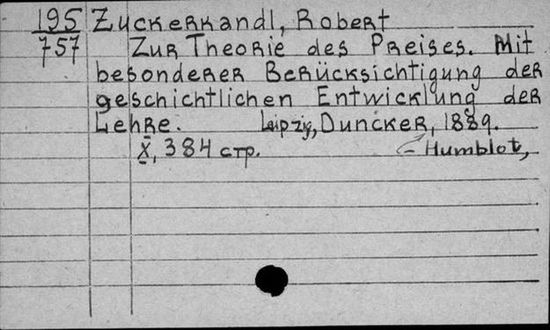 195 Zuckerkandl, Robert
757 Zur Theorie des Preises. Mit
besonderer Berücksichtigung der
geschichtlichen Entwicklung der
Lehre. Leipzig, Duncker, 1889.
X, 384 стр. – Humblot,